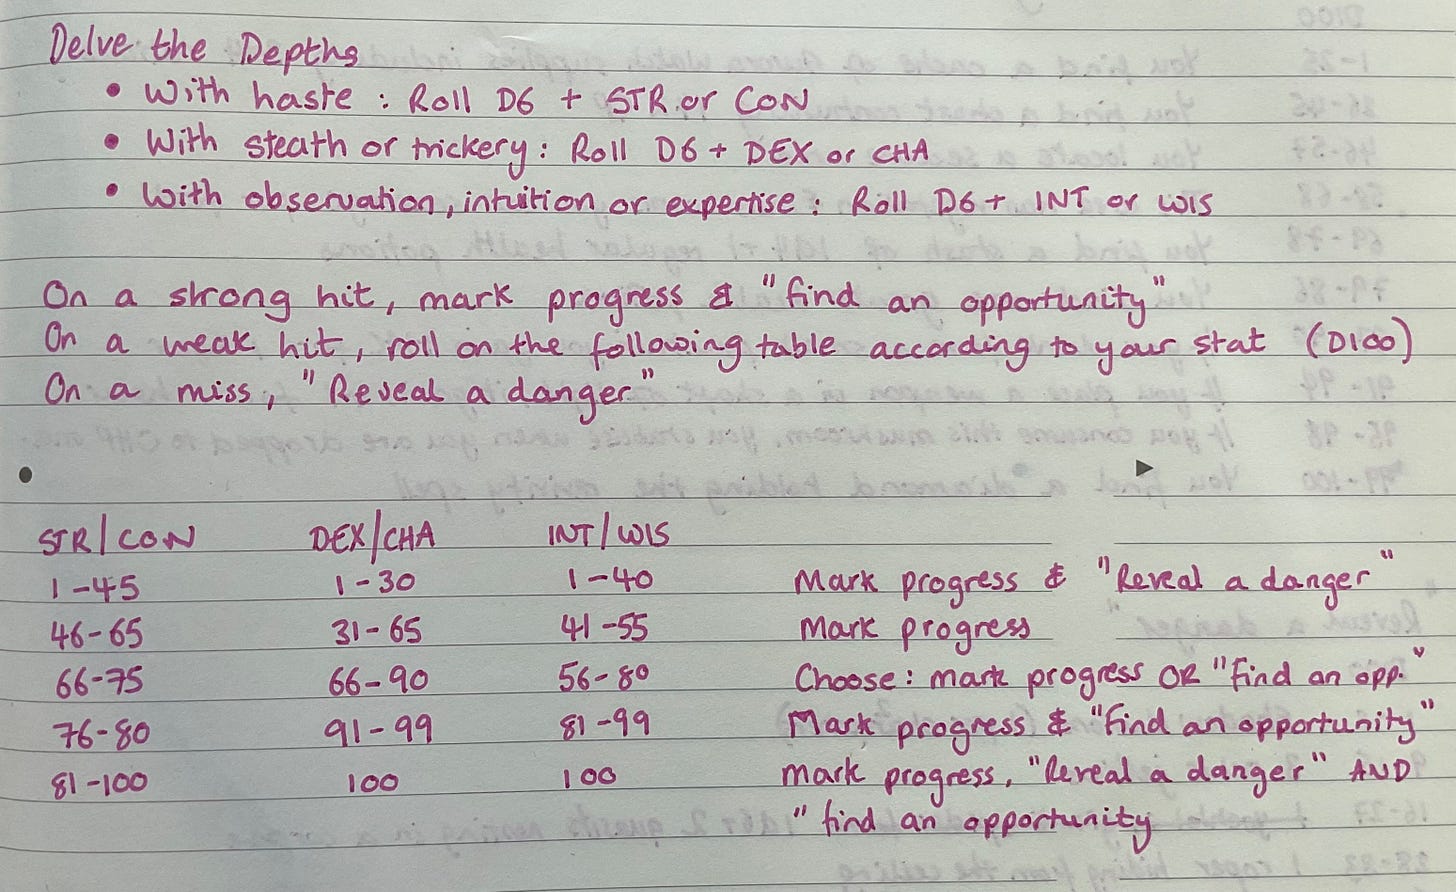 Delve the Depths
• With haste : Roll D6 + STR or CON
• With steath or trickery : Roll D6 + DEX or CHA
• With observation, intuition or expertise : Roll D6 + INT or WIS
On a strong hit, mark progress & "find an opportunity"
On a weak hit, roll on the following table according to your stat (D100)
On a miss, "Reveal a danger"
STR/CON DEX/CHA INT/WIS
1-45 1-30 1-40 Mark progress & "Reveal a danger"
46-65 31-65 41-55 Mark progress
66-75 66-90 56-80 Choose: mark progress OR "find an opp."
76-80 91-99 81-99 Mark progress & "find an opportunity"
81-100 100 100 mark progress, "Reveal a danger" AND
"find an opportunity